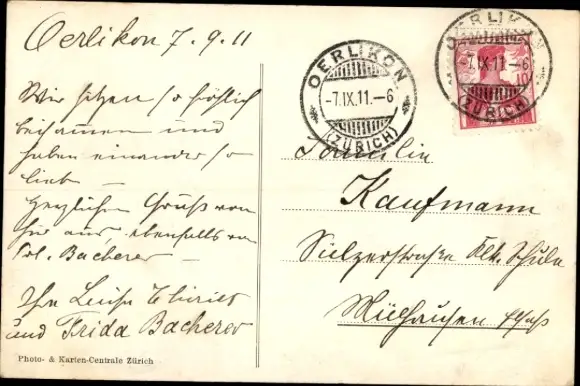 Oerlikon 7.9.11
Wir sitzen so fröhlich
beisammen und
haben einander so
lieb
Herzlichen Gruß von
hier aus, ebenfalls von
Frl. Bacherer
Ihr Luise
und Frida Bacherer
Photo- & Karten-Centrale Zürich
OERLIKON
-7.IX.11.-6
(ZÜRICH)
OERLIKON
-7.IX.11.-6
(ZÜRICH)
10
Familie
Kaufmann
Sulzerstraße Schule
Mülhausen Elsaß